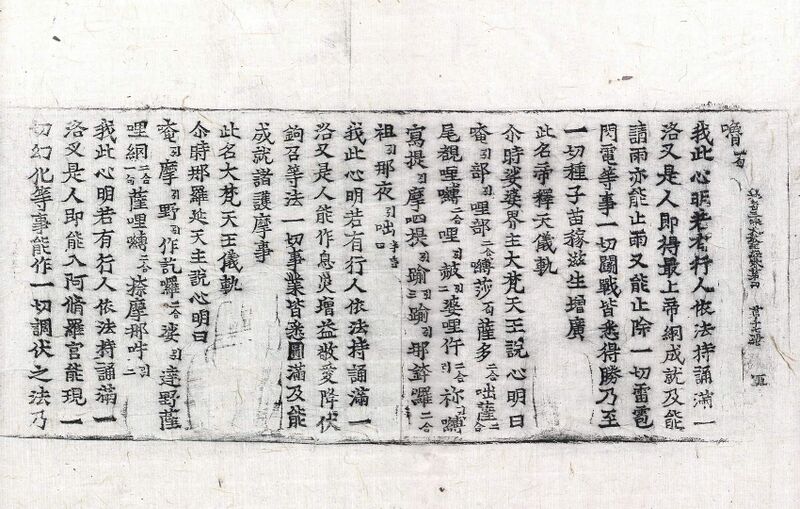 嚕一句
我此心明若有行人依法持誦滿一
洛叉是人即得最上帝網成就及能
請雨亦能止雨又能止除一切雷雹
閃電等事一切鬪戰皆悉得勝乃至
一切種子苗稼滋生增廣
此名帝釋天儀軌
尒時娑婆界主大梵天王說心明曰
唵引部引哩部二合嚩莎引薩多二合咄薩二合
尾覩哩嚩二合哩二合婆哩仡二合祢引嚩
寫提引摩呬提引瑜引瑜引那鉢囉二合
祖引那夜引咄
我此心明若有行人依法持誦滿一
洛叉是人能作息災增益敬愛降伏
鉤召等法一切事業皆悉圓滿及能
成就諸護摩事
此名大梵天王儀軌
尒時那羅延天主說心明曰
唵引摩引野引作訖囉二合娑引達野薩
哩網二合薩哩嚩二合摩那吽引二
我此心明若有行人依法持誦滿一
洛叉是人即能入阿脩羅宮能現一
切幻化等事能作一切調伏之法乃